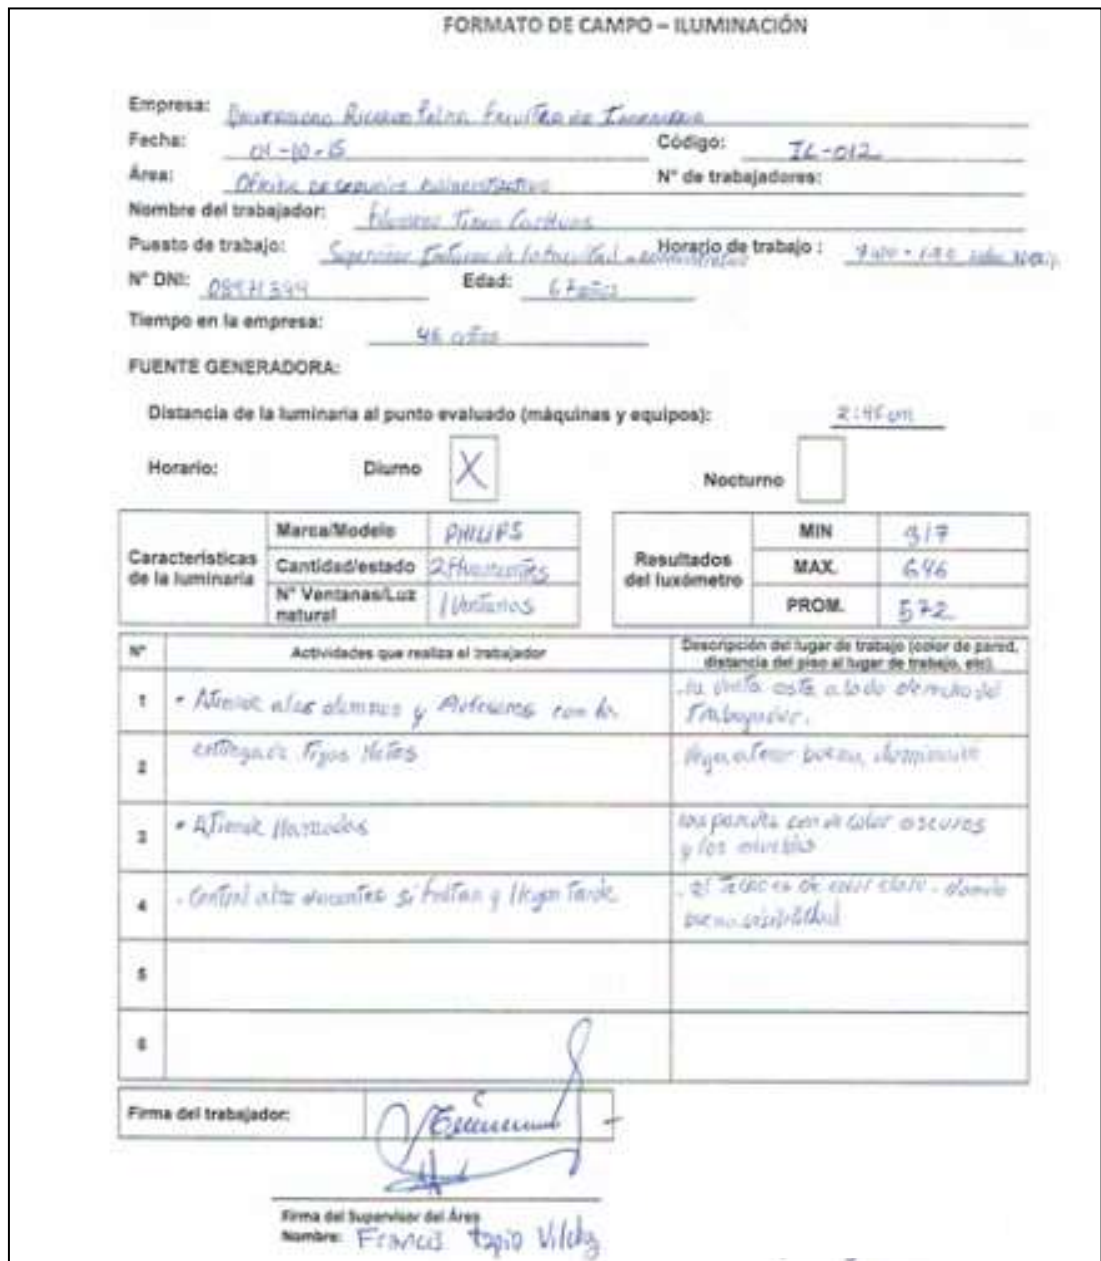 FORMATO DE CAMPO – ILUMINACIÓN
Empresa: Universidad Ricardo Palma Facultad de Ingenieria
Fecha: 01-10-15 Código: IL-012
Área: Oficina de Administrativo
N° de trabajadores:
Nombre del trabajador:
Puesto de trabajo: Supervisor Horario de trabajo :
N° DNI: Edad: 67 años
Tiempo en la empresa: 46 años
FUENTE GENERADORA:
Distancia de la luminaria al punto evaluado (máquinas y equipos): 2:45 cm
Horario: Diurno X Nocturno
Características de la luminaria
Marca/Modelo PHILIPS
Cantidad/estado 2 Fluorescentes
N° Ventanas/Luz natural 1 Ventanas
Resultados del luxómetro
MIN 317
MAX. 646
PROM. 572
N° Actividades que realiza el trabajador Descripción del lugar de trabajo (color de pared, distancia del piso al lugar de trabajo, etc).
1 • Atiende alos alumnos y Profesores con la
Trabajador.
2 entrega de Fijas Notas
buena iluminación
3 • Atiende llamadas
color oscuros
y los muebles
4 - Control alos docentes si faltan y llegan Tarde
. el Techo es de color claro - dando
buena visibilidad
5
6
Firma del trabajador:
Firma del Supervisor del Área
Nombre: Francis Tapia Vilchez